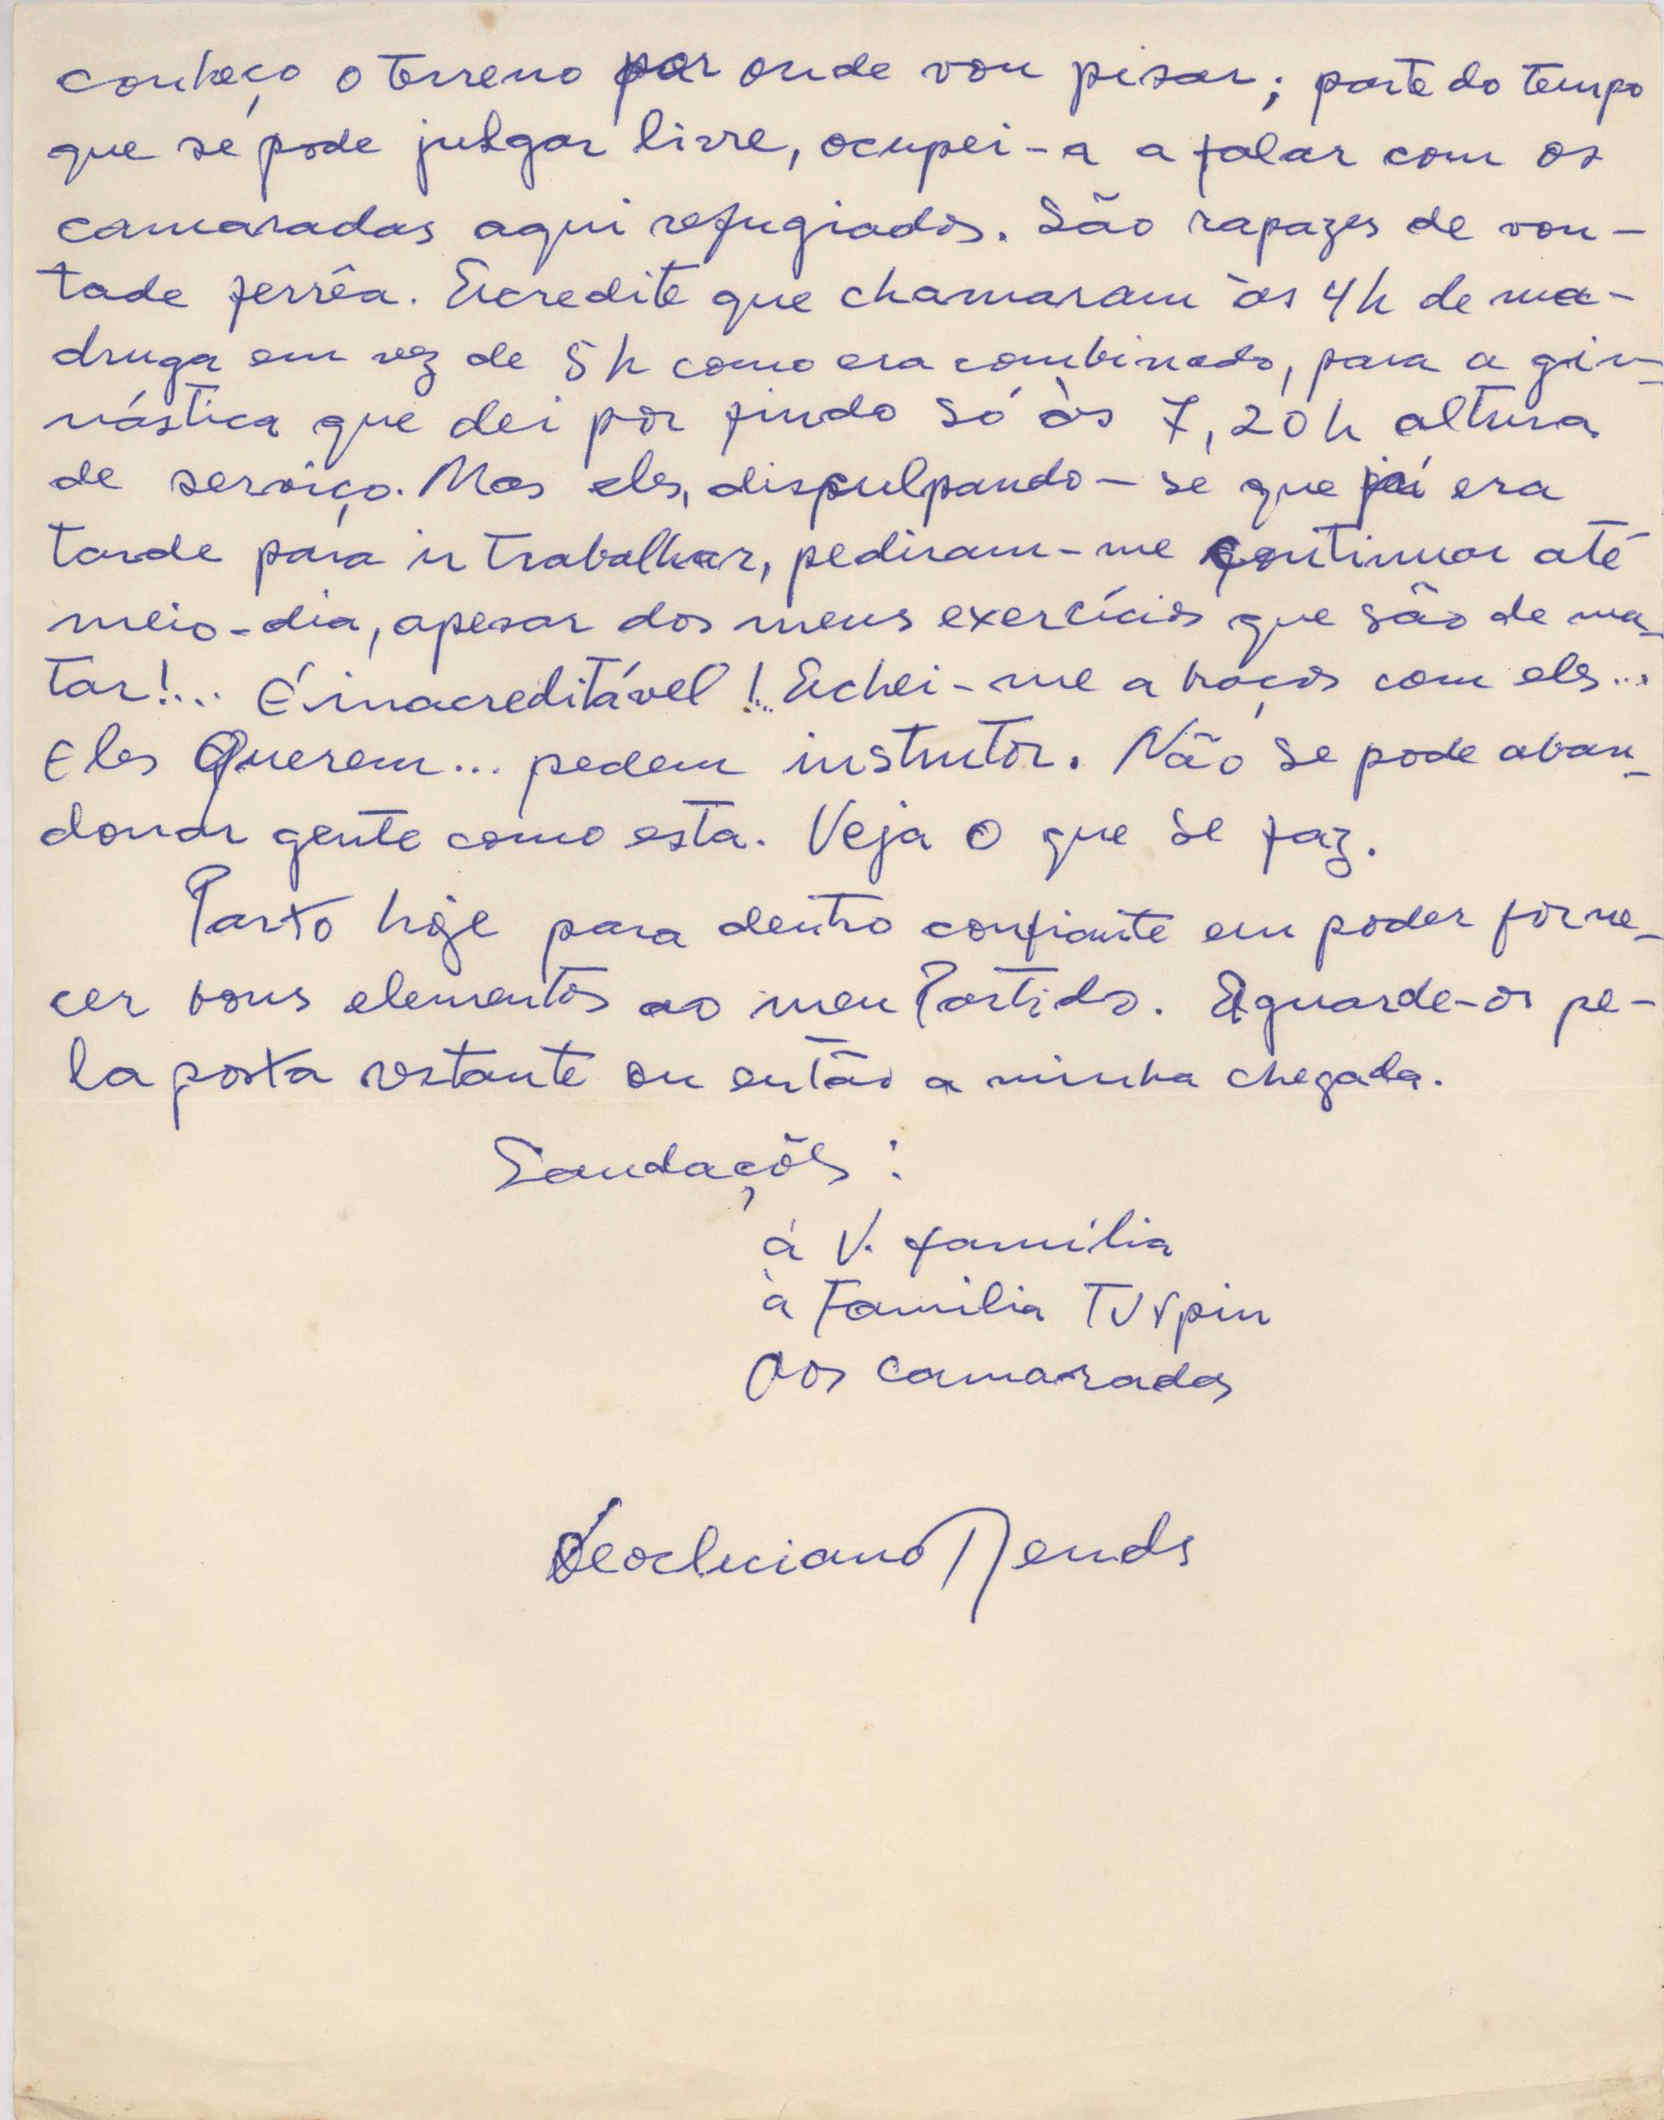 conheço o terreno por onde vou pisar; parte do tempo
que se pode julgar livre, ocupei-a a falar com os
camaradas aqui refugiados. São rapazes de von-
tade ferrêa. Acredite que chamaram às 4h de ma-
druga em vez de 5h como era combinado, para a gin-
nástica que dei por findo só às 7,20h altura
de serviço. Mas eles, dispulpando-se que já era
tarde para ir trabalhar, pediram-me continuar até
meio-dia, apesar dos meus exercícios que são de ma-
tar!... É inacreditável!... Achei-me a braços com eles...
Eles Querem... pedem instrutor. Não se pode aban-
donar gente como esta. Veja o que se faz.
Parto hoje para dentro confiante em poder forne-
cer bons elementos ao meu Partido. Aguarde-os pe-
la posta restante ou então a minha chegada.
Saudações:
à V. família
à Família Turpin
Aos camaradas
Deocluciano Mendes